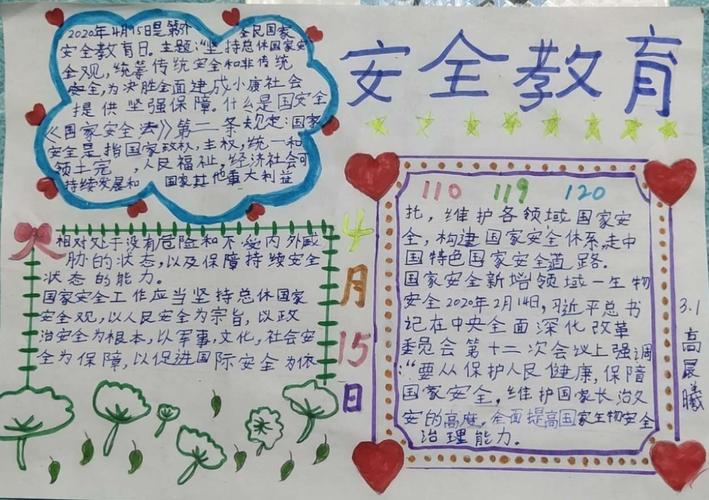 安全教育
2020年4月15日是第5个全民国家
安全教育日.主题:“坚持总体国家安
全观,统筹传统安全和非传统
安全,为决胜全面建成小康社会
提供坚强保障.什么是国安全
《国家安全法》第二条规定:国家
安全是指国家政权,主权,统一和
领土完,人民福祉,经济社会可
持续发展和国家其他重大利益
相对处于没有危险和不受内外威
胁的状态,以及保障持续安全
状态的能力.
国家安全工作应当坚持总体国家
安全观,以人民安全为宗旨,以政
治安全为根本,以军事,文化,社会安
全为保障,以促进国际安全为依
4月15日
110 119 120
托,维护各领域国家安
全,构建国家安全体系,走中
国特色国家安全道路.
国家安全新增领域一生物
安全2020年2月14日,习近平总书
记在中央全面深化改革
委员会第十二次会议上强调
:“要从保护人民健康,保障
国家安全,维护国家长治久
安的高度,全面提高国家生物安全
治理能力.
3.1高晨曦